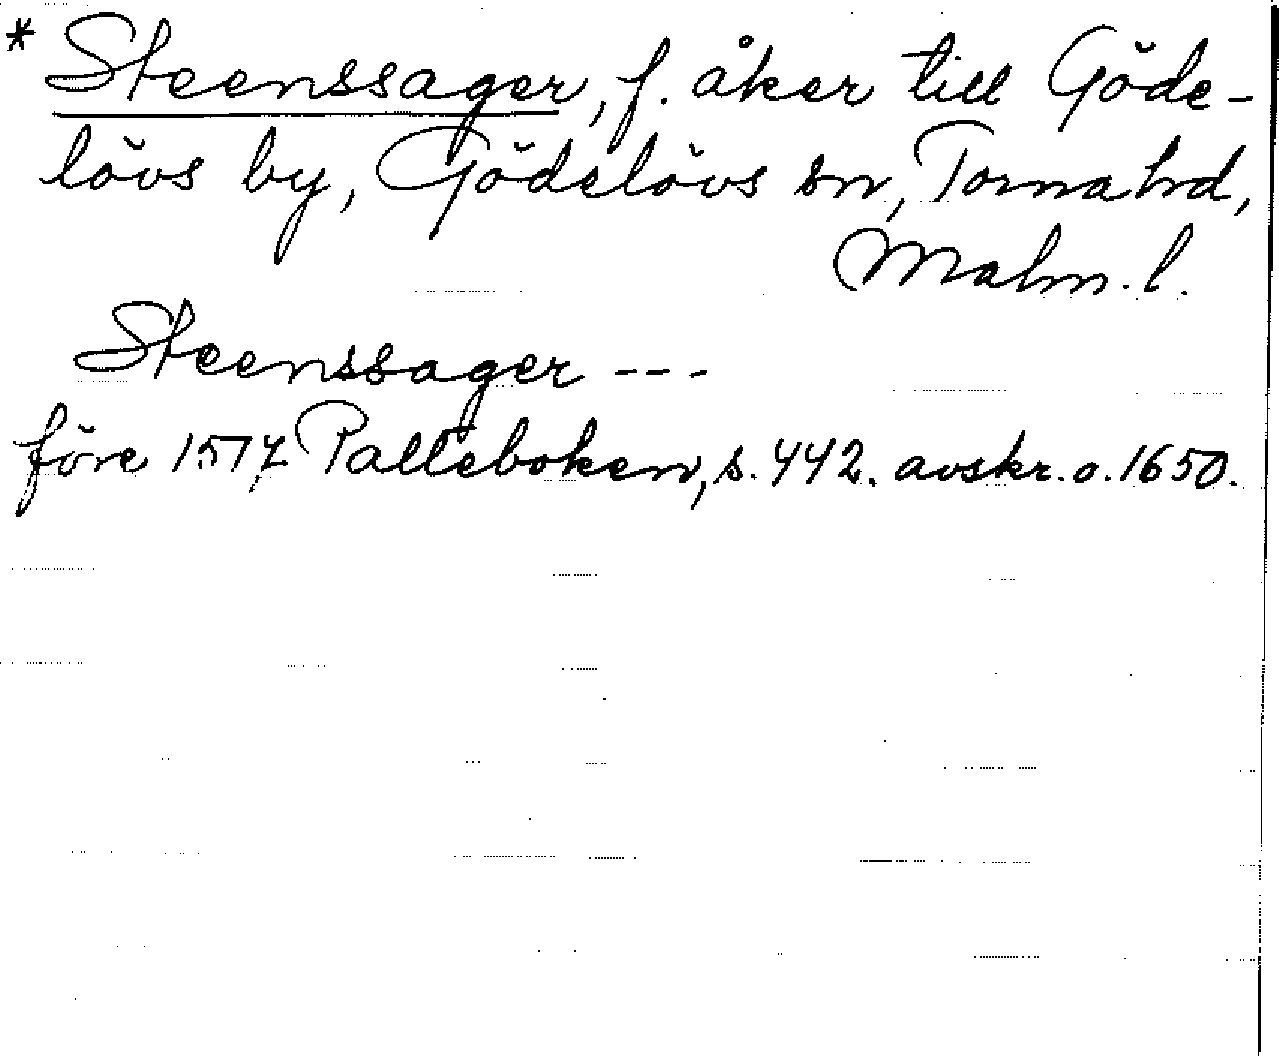 * Steenssager, f. åker till Göde-
lövs by, Gödelövs sn, Torna hd,
Malm. l.
Steenssager ---
före 1517 Palteboken, s. 442. avskr. o. 1650.